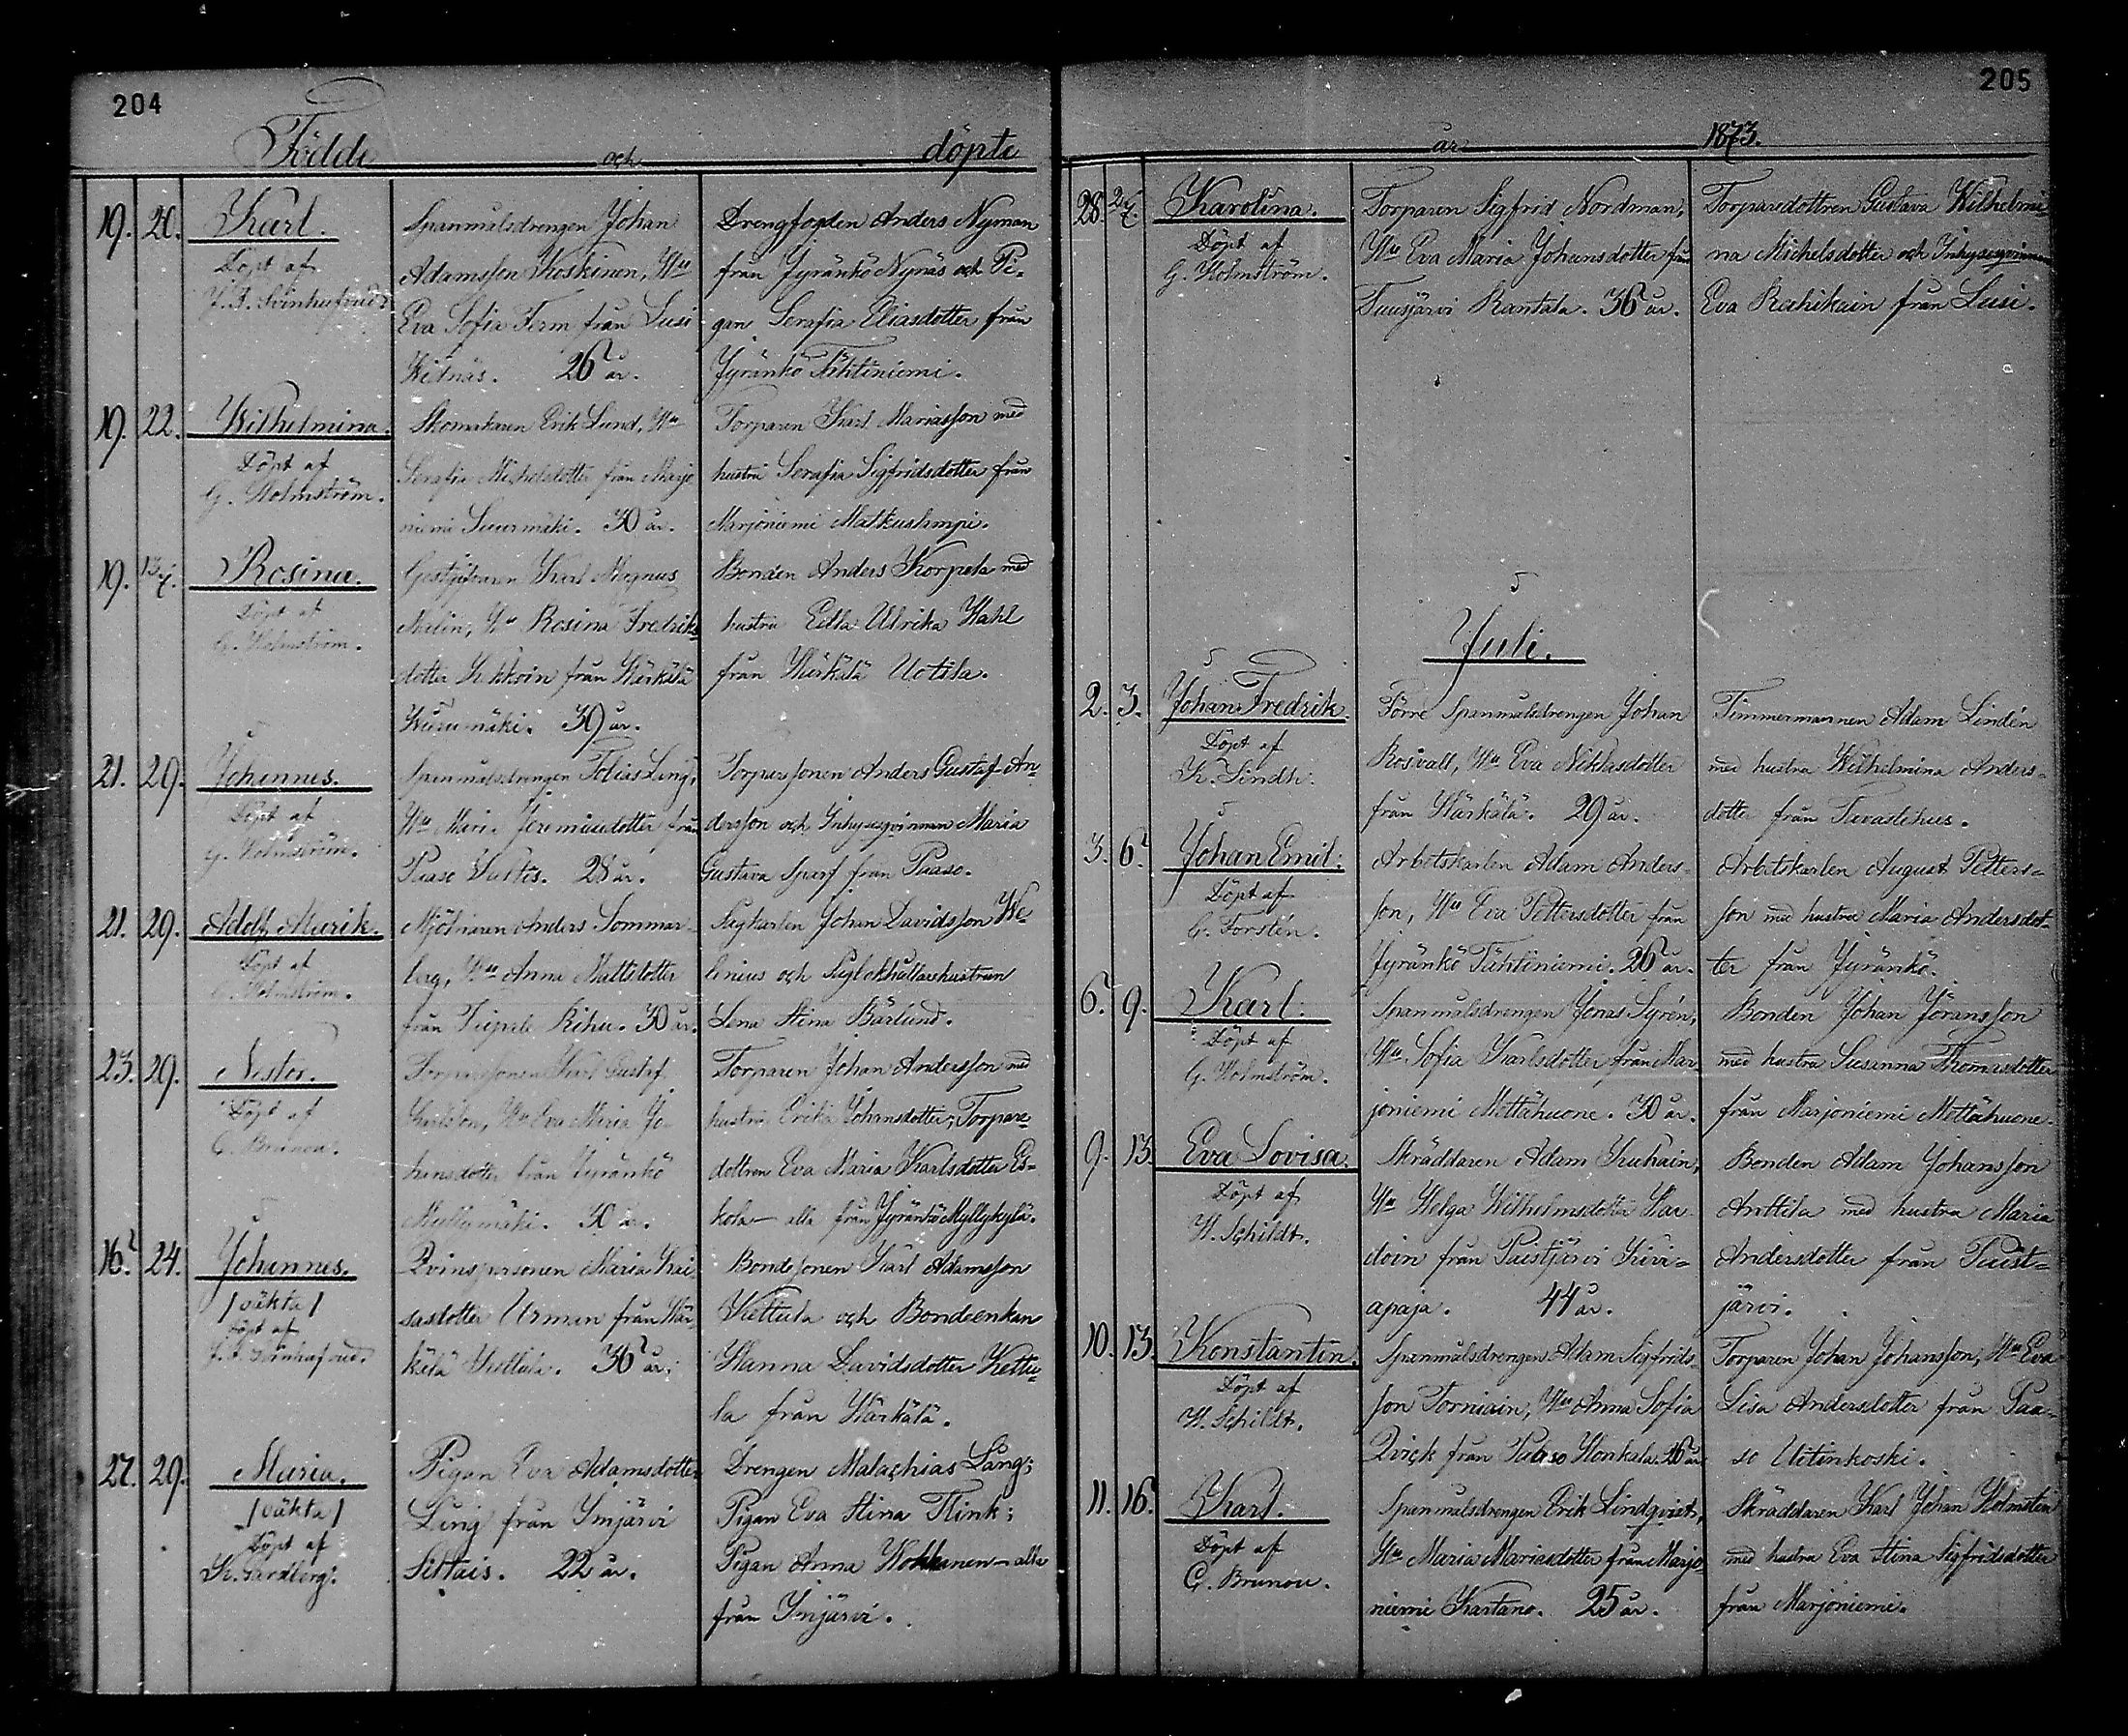 204
Födde och döpte
19. 20. Karl.
Döpt af
Spanmålsdrengen Johan
Adamsson Koskinen, Hu
Eva Sofia Term från Lusi
Wiknäs. 26 år.
Drengfogden Anders Nyman
från Jyränkö Nynäs och Pi-
gan Serafia Eliasdotter från
Jyränkö Tähtiniemi.
19. 22. Wilhelmina.
Döpt af
G. Holmström.
Skomakaren Erik Lund, Hu
Serafia Michelsdotter från Marjo
niemi Suurmäki. 30 år.
Torparen Karl Mariasson med
hustru Serafia Sigfridsdotter från
Marjoniemi Matkuslampi.
19. 13/7. Rosina.
Döpt af
G. Holmström.
Gestgifvaren Karl Magnus
Malin, Hu Rosina Fredriks
dotter från Härkälä
39 år.
Bonden Anders Korpela med
hustru Edla Ulrika Wahl
från Härkälä Uotila.
21. 29. Johannes.
Döpt af
G. Holmström.
Spanmålsdrengen Tobias Ling,
Hu Maria Jeremiasdotter från
Paaso 28 år.
Torparsonen Anders Gustaf An-
dersson och Inhysesqvinnan Maria
Gustava Sparf från Paaso.
21. 29. Adolf Maurik.
Döpt af
G. Holmström.
Mjölnaren Anders Sommar-
berg, Hu Anna Mattsdotter
från 30 år.
Sagkarlen Johan Davidsson We-
lenius och
Lena Stina Bärlund.
23. 29. Nestor.
Döpt af
C. Brunou.
Torparsonen Karl Gustaf
Karlsson, Hu Eva Maria Jo-
hansdotter från Jyränkö
Myllymäki. 30 år.
Torparen Johan Andersson med
hustru Erika Johansdotter, Torpare
dottren Eva Maria Karlsdotter Es-
kola - alla från Jyränkö Myllykylä.
16. 24. Johannes.
/oäkta/
Döpt af
Qvinspersonen Maria Krai-
sasdotter Urman från Här-
kälä Kettula. 36 år.
Bondesonen Karl Adamsson
Kettula och Bondeenkan
Hanna Davidsdotter Kettu-
la från Härkälä.
27. 29. Maria.
/oäkta/
Döpt af
K. Sandberg.
Pigan Eva Adamsdotter
Ling från Imjärvi
Siltais. 22 år.
Drengen Malachias Lång;
Pigan Eva Stina Flink;
Pigan Anna Hokkanen - alla
från Imjärvi.
205
år 1873.
28. 2/7. Karolina.
Döpt af
G. Holmström.
Torparen Sigfrid Nordman,
Hu Eva Maria Johansdotter från
Tuusjärvi Rantala. 36 år.
Torparedottren Gustava Wilhelmi
na Michelsdotter och Inhysesqvinnan
Eva Rahikain från Lusi.
Juli.
2. 3. Johan Fredrik.
Döpt af
K. Lindh.
Förre Spanmålsdrengen Johan
Rosvall, Hu Eva Niklasdotter
från Härkälä. 29 år.
Timmermannen Adam Lindén
med hustru Wilhelmina Anders-
dotter från Tavastehus.
3. 6. Johan Emil.
Döpt af
C. Forstén.
Arbetskarlen Adam Anders-
son, Hu Eva Pettersdotter från
Jyränkö Tähtiniemi. 26 år.
Arbetskarlen August Petters-
son med hustru Maria Andersdot-
ter från Jyränkö.
6. 9. Karl.
Döpt af
G. Holmström.
Spanmålsdrengen Jonas Syrén,
Hu Sofia Karlsdotter från Mar-
joniemi Mettähuone. 30 år.
Bonden Johan Jöransson
med hustru Susanna Thomasdotter
från Marjoniemi Mettähuone.
9. 13 Eva Lovisa.
Döpt af
W. Schildt.
Skräddaren Adam Kuhain,
Hu Helga Wilhelmsdotter Kar-
doin från Paistjärvi Kivi-
apaja. 44 år.
Bonden Adam Johansson
Anttila med hustru Maria
Andersdotter från Paist-
järvi.
10. 13. Konstantin.
Döpt af
W. Schildt.
Spanmålsdrengen Adam Sigfrids-
son Torniain, Hu Anna Sofia
Qvick från Paaso Honkala. 26 år
Torparen Johan Johansson, Hu Eva
Lisa Andersdotter från Paa-
so Uitinkoski.
11. 16. Karl.
Döpt af
C. Brunou.
Spanmålsdrengen Erik Lindqvist,
Hu Maria Mariasdotter från Marjo
niemi Kartano. 25 år.
Skräddaren Karl Johan Holmstén
med hustru Eva Stina Sigfridsdotter
från Marjoniemi.